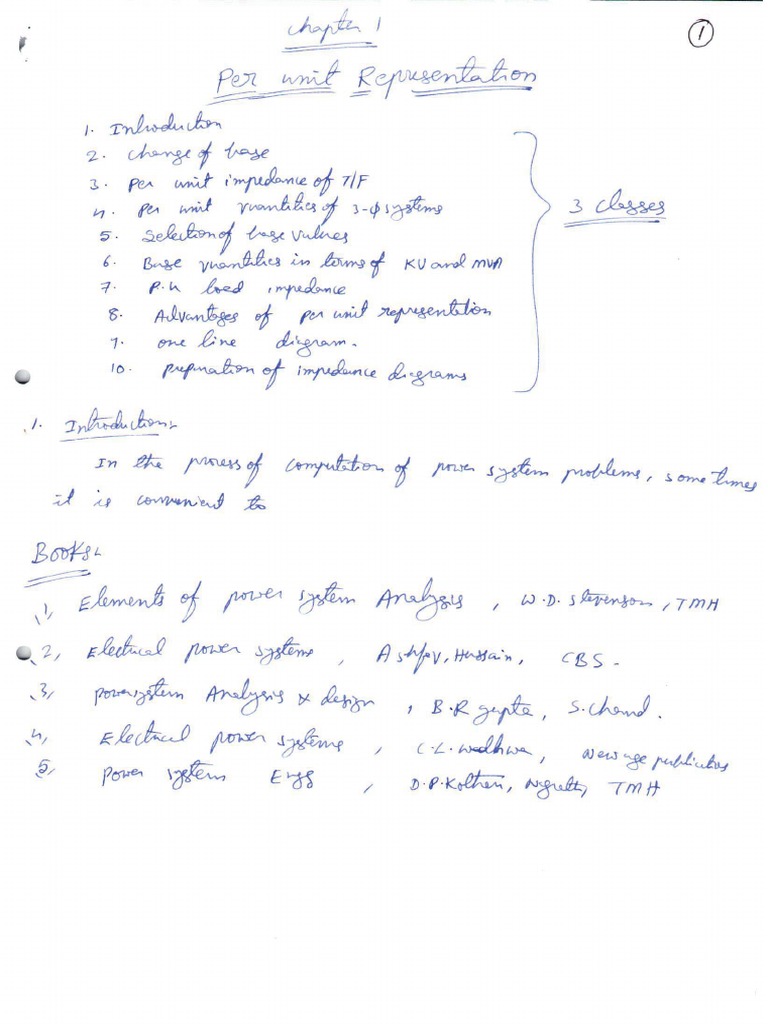 Chapter 1
1
Per unit Representation
1. Introduction
2. change of base
3. per unit impedance of T/F
4. per unit quantities of 3-φ systems
5. Selection of base values
6. Base quantities in terms of KV and MVA
7. P.u load impedance
8. Advantages of per unit representation
9. one line diagram.
10. preparation of impedance diagrams
3 classes
1. Introduction:-
In the process of computation of power system problems, some times
it is convenient to
Books:-
1, Elements of power system Analysis, W.D. Stevenson, TMH
2, Electrical power systems, Ashfaq, Hussain, CBS.
3, power system Analysis & design, B.R gupta, S. Chand.
4, Electrical power systems, C.L. wadhwa, New age publications
5, Power systems Engg, D.P. Kothari, TMH